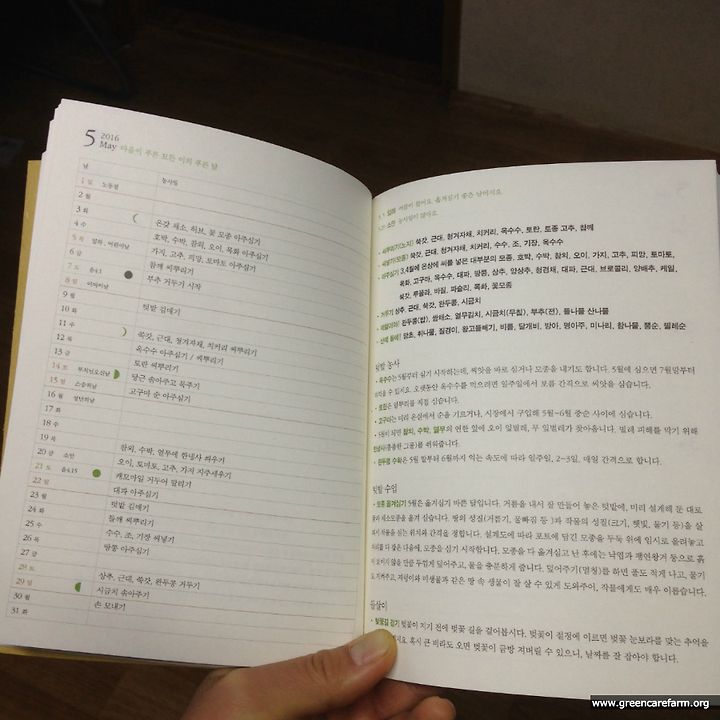 5 2016
May 마음이 푸른 모든 이의 푸른 달
날 농사일
1 일 노동절
2 월
3 화
4 수 온갖 채소, 허브, 꽃 모종 아주심기
5 목 입하 . 어린이날 호박, 수박, 참외, 오이, 목화 아주심기
6 금 가지, 고추, 피망, 토마토 아주심기
7 토 음4.1 참깨 씨뿌리기
8 일 어버이날 부추 거두기 시작
9 월
10 화 텃밭 김매기
11 수
12 목 쑥갓, 근대, 청겨자채, 치커리 씨뿌리기
13 금 옥수수 아주심기 / 씨뿌리기
14 토 부처님오신날 토란 씨뿌리기
15 일 스승의날 당근 솎아주고 북주기
16 월 성년의날 고구마 순 아주심기
17 화
18 수
19 목
20 금 소만 참외, 수박, 열무에 한냉사 씌우기
21 토 음4.15 오이, 토마토, 고추, 가지 지주세우기
22 일 캐모마일 거두어 말리기
23 월 대파 아주심기
24 화 텃밭 김매기
25 수 들깨 씨뿌리기
26 목 수수, 조, 기장 씨넣기
27 금 땅콩 아주심기
28 토
29 일 상추, 근대, 쑥갓, 완두콩 거두기
30 월 시금치 솎아주기
31 화 손 모내기
입하 여름이 왔어요. 옮겨심기 좋은 날이지요.
소만 농사일이 많아요.
• 씨뿌리기(노지) 쑥갓, 근대, 청겨자채, 치커리, 옥수수, 토란, 토종 고추, 참깨
쑥갓, 근대, 청겨자채, 치커리, 수수, 조, 기장, 옥수수
• 아주심기 3,4월에 온상에 씨를 넣은 대부분의 모종, 호박, 수박, 참외, 오이, 가지, 고추, 피망, 토마토,
목화, 고구마, 옥수수, 대파, 땅콩, 상추, 양상추, 청경채, 대파, 근대, 브로콜리, 양배추, 케일,
쑥갓, 루꼴라, 바질, 파슬리, 목화, 꽃모종
• 거두기 상추, 근대, 쑥갓, 완두콩, 시금치
완두콩(밥), 쌈채소, 열무김치, 시금치(무침), 부추(전), 들나물 산나물
망초, 취나물, 질경이, 왕고들빼기, 비름, 달개비, 망아, 명아주, 미나리, 참나물, 뽕순, 찔레순
텃밭 농사
• 옥수수는 5월부터 심기 시작하는데, 씨앗을 바로 심거나 모종을 내기도 합니다. 5월에 심으면 7월말부터
먹을 수 있지요. 오랫동안 옥수수를 먹으려면 일주일에서 보름 간격으로 씨앗을 심습니다.
• 토란은 알뿌리를 직접 심습니다.
• 고구마는 미리 온실에서 순을 기르거나, 시장에서 구입해 5월~6월 중순 사이에 심습니다.
• 5월이 되면 참외, 수박, 열무의 연한 잎에 오이 잎벌레, 무 잎벌레가 찾아옵니다. 벌레 피해를 막기 위해
한냉사(촘촘한 그물)를 씌워줍니다.
• 완두콩 수확은 5월 말부터 6월까지 익는 속도에 따라 일주일, 2~3일, 매일 간격으로 합니다.
텃밭 수업
• 모종 옮겨심기 5월은 옮겨심기 바쁜 달입니다. 거름을 내서 잘 만들어 놓은 텃밭에, 미리 설계해 둔 대로
꽃과 채소모종을 옮겨 심습니다. 땅의 성질(거름기, 물빠짐 등)과 작물의 성질(크기, 햇빛, 물기 등)을 살
펴서 작물을 심는 위치와 간격을 정합니다. 설계도에 따라 포트에 담긴 모종을 두둑 위에 임시로 올려놓고
모종을 다 옮겨심고 난 후에는 낙엽과 쌩연왕거 등으로 흙
덮어주고, 물을 충분하게 줍니다. 덮어주기(멀칭)를 하면 풀도 적게 나고, 물기
도 지켜주고, 지렁이와 미생물과 같은 땅 속 생물이 잘 살 수 있게 도와주어, 작물에게도 매우 이롭습니다.
들살이
• 벚꽃길 걷기 벚꽃이 지기 전에 벚꽃 길을 걸어봅시다. 벚꽃이 절정에 이르면 벚꽃 눈보라를 맞는 추억을
혹시 큰 비라도 오면 벚꽃이 금방 져버릴 수 있으니, 날짜를 잘 잡아야 합니다.
www.greencarefarm.org